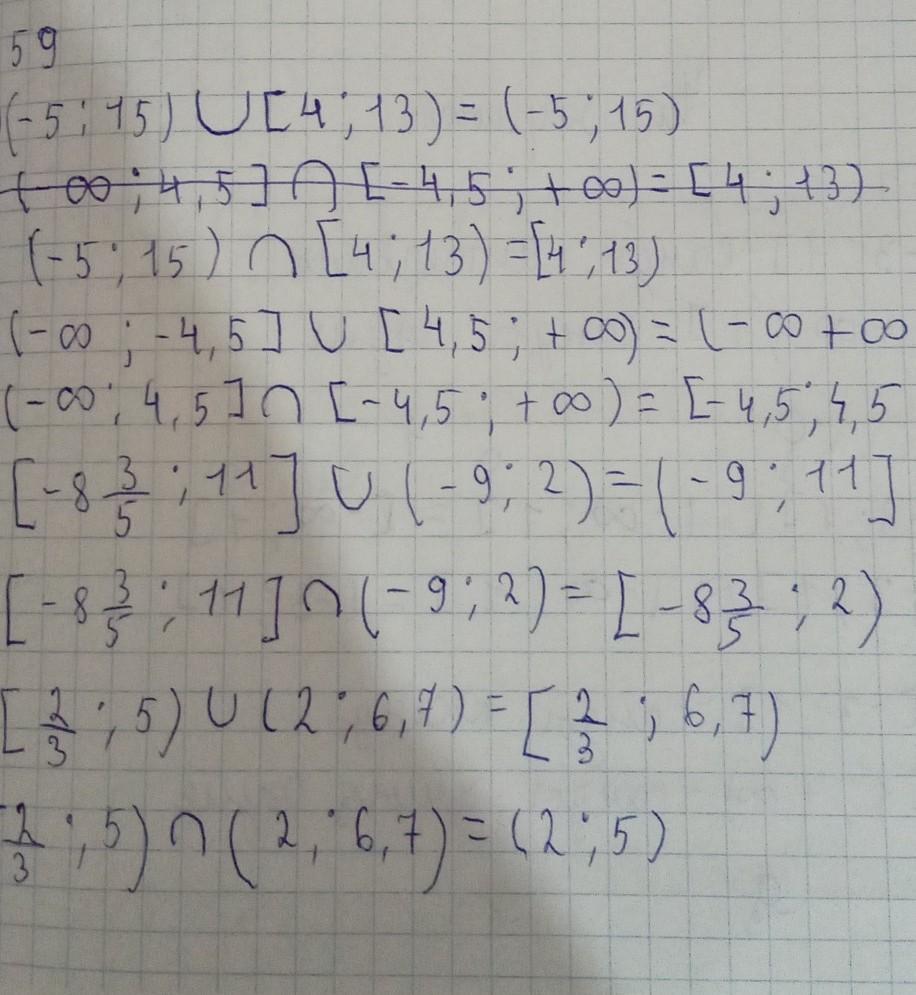 59
(-5 ; 15) ∪ [4 ; 13) = (-5 ; 15)
(-∞ ; 4,5] ∩ [-4,5 ; +∞) = [4 ; 13)
(-5 ; 15) ∩ [4 ; 13) = [4 ; 13)
(-∞ ; -4,5] ∪ [4,5 ; +∞) = (-∞ +∞
(-∞ ; 4,5] ∩ [-4,5 ; +∞) = [-4,5 ; 4,5
[-8 3/5 ; 11] ∪ (-9 ; 2) = (-9 ; 11]
[-8 3/5 ; 11] ∩ (-9 ; 2) = [-8 3/5 ; 2)
[2/3 ; 5) ∪ (2 ; 6,7) = [2/3 ; 6,7)
2/3 ; 5) ∩ (2 ; 6,7) = (2 ; 5)